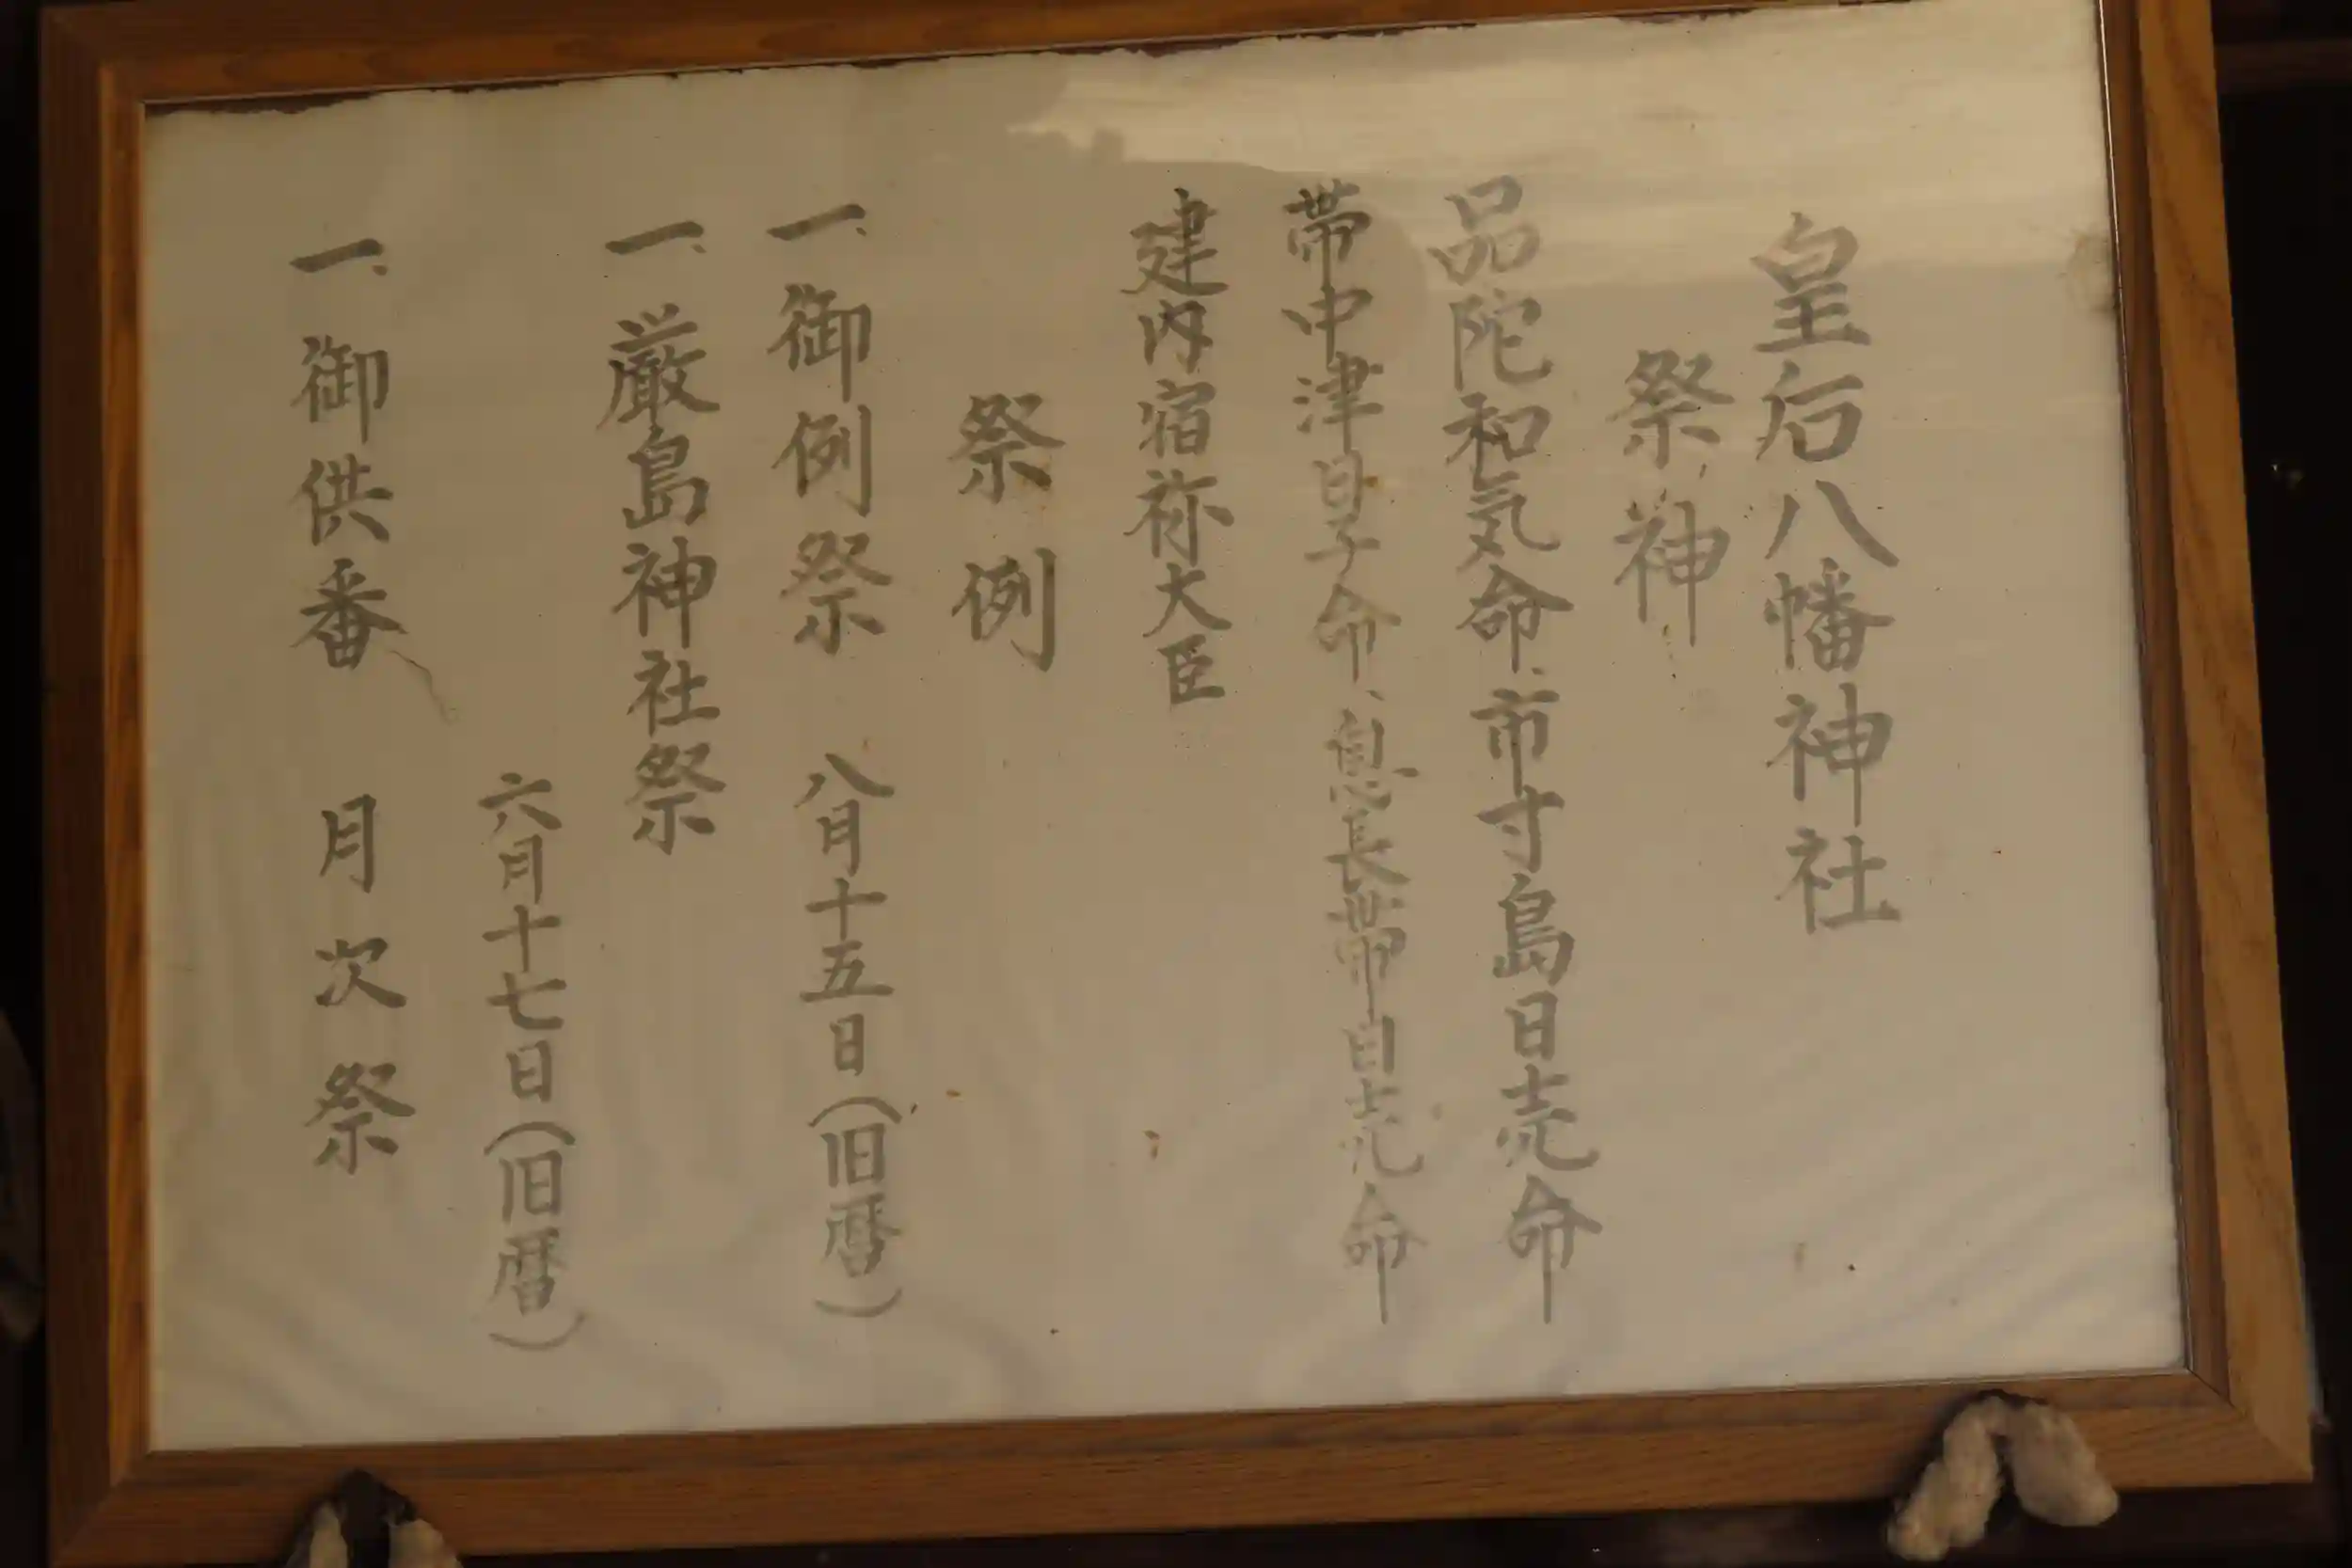 皇后八幡神社
祭神
品陀和気命、市寸島日売命
帯中津日子命、息長帯日売命
建内宿祢大臣
祭例
一、御例祭 八月十五日(旧暦)
一、厳島神社祭
六月十七日(旧暦)
一、御供番 月次祭